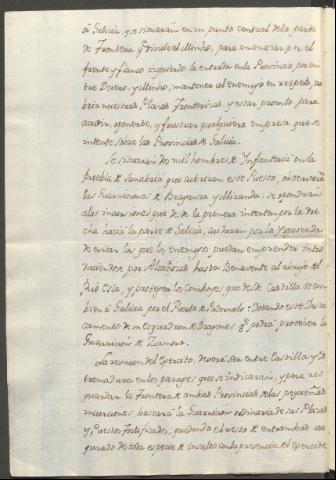 á Galicia, y se situarán en un punto central de la parte
de Frontera q.e divide el Miño, para amenazar por el
frente y flanco izquierdo la entrada en la Provincia, por en
tre Duero, y Miño, mantener al enemigo en respeto, cu
brir nuestras Plazas Fronterizas, y estar pronto para
acudir, oponerse, y frustrar qualquiera empresa que se
intente sobre las Provincias de Galicia.
Se situarán mil hombres de Infanteria en la
Puebla de Sanabria que cubriran este Puesto, observarán
las Guarniciones de Braganza y Miranda, se opondrán
a las incursiones que desde la primera intenten por la dere
cha hacia la parte de Galicia, cuidarán por la Izquierda
de evitar la que los Enemigos puedan emprender intro
duciendose por Alcañizas hasta Benavente al abrigo del
Rio Esla, y protegeran los Comboyes que desde Castilla se em
bien à Galicia por el Puerto de Padornelo: Dotando este Desta
camento de un Esquadron de Dragones q.e podrá proveher la
Guarnicion de Zamora.
La reunion del Exercito, deverá ser entre Castilla y Es
tremadura en los parages que se indicarán, y para res
guardar la Frontera de ambas Provincias de las pequeñas
incursiones, bastará la Guarnicion ordinaria de sus Plazas
y Puestos fortificados, quedando el resto de entrambas ase
gurado de toda especie de insulto con la presencia del Exercito